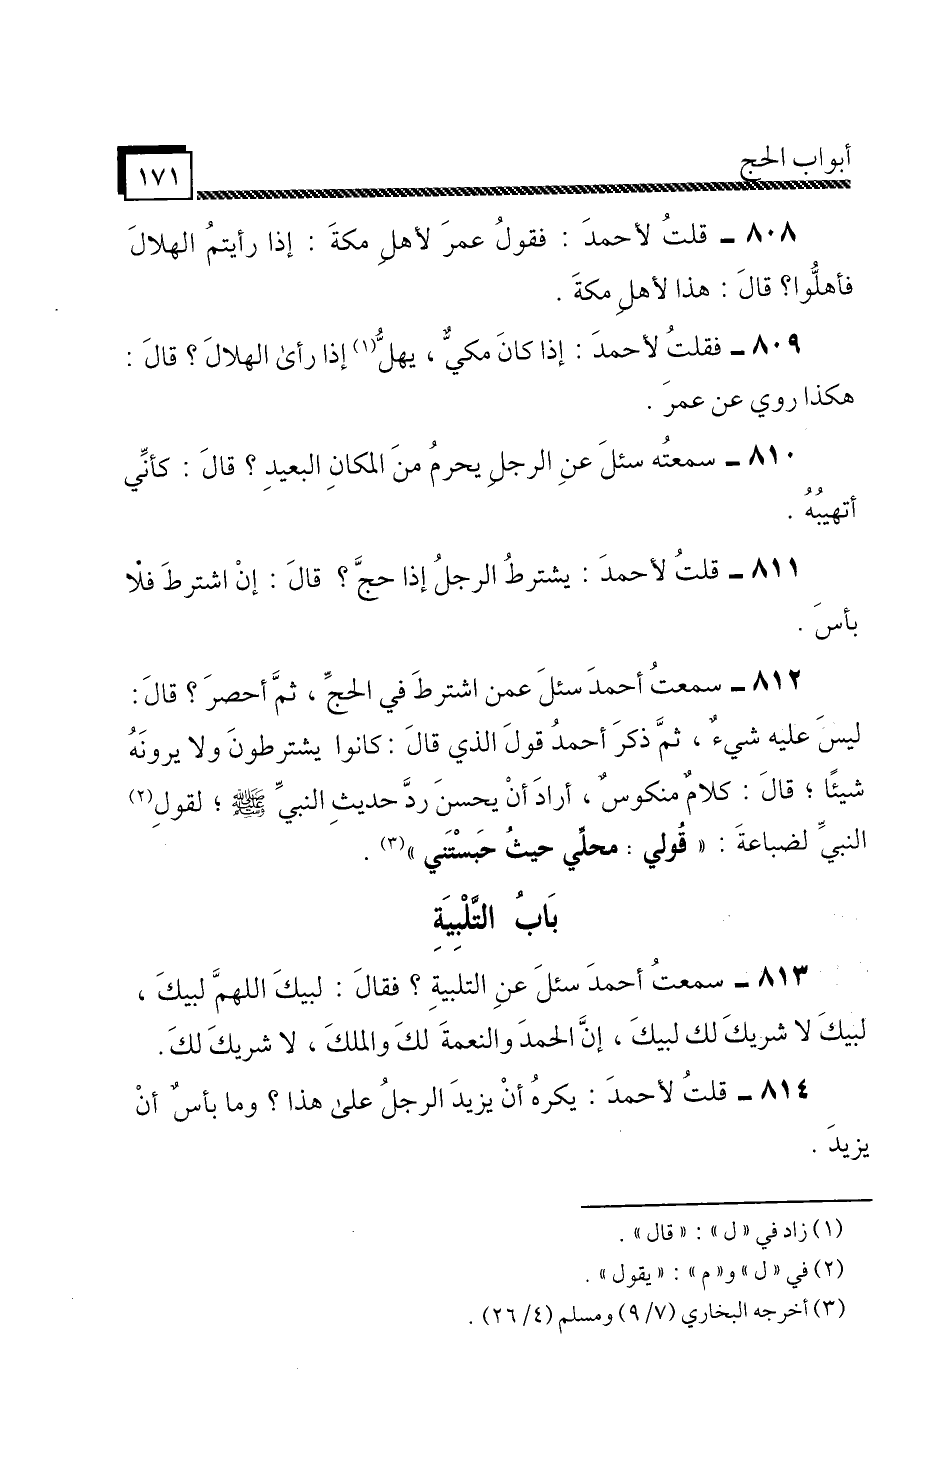 أبواب الحج
١٧١
٨٠٨ ـ قلتُ لأحمدَ : فقولُ عمرَ لأهلِ مكةَ : إذا رأيتمُ الهلالَ
فأهلُّوا؟ قالَ : هذا لأهلِ مكةَ .
٨٠٩ ـ فقلتُ لأحمدَ : إذا كانَ مكيٌّ ، يهلُّ(١) إذا رأىٰ الهلالَ ؟ قالَ :
هكذا روي عن عمرَ .
٨١٠ ـ سمعتُه سئلَ عنِ الرجلِ يحرمُ منَ المكانِ البعيدِ ؟ قالَ : كأنِّي
أتهيبُهُ .
٨١١ ـ قلتُ لأحمدَ : يشترطُ الرجلُ إذا حجَّ ؟ قالَ : إنْ اشترطَ فلْا
بأسَ .
٨١٢ ـ سمعتُ أحمدَ سئلَ عمن اشترطَ في الحجِّ ، ثمَّ أحصرَ ؟ قالَ :
ليسَ عليه شيءٌ ، ثمَّ ذكرَ أحمدُ قولَ الذي قالَ : كانوا يشترطونَ ولا يرونَهُ
شيئًا ؛ قالَ : كلامٌ منكوسٌ ، أرادَ أنْ يحسنَ ردَّ حديثِ النبيِّ ﷺ ؛ لقولِ(٢)
النبيِّ لضباعةَ : « قُولي : محلِّي حيثُ حَبَسْتَني »(٣) .
بَابُ التَّلْبِيَةِ
٨١٣ ـ سمعتُ أحمدَ سئلَ عنِ التلبيةِ ؟ فقالَ : لبيكَ اللهمَّ لبيكَ ،
لبيكَ لا شريكَ لك لبيكَ ، إنَّ الحمدَ والنعمةَ لكَ والملكَ ، لا شريكَ لكَ .
٨١٤ ـ قلتُ لأحمدَ : يكرهُ أنْ يزيدَ الرجلُ علىٰ هذا ؟ وما بأسٌ أنْ
يزيدَ .
(١) زاد في « ل » : « قال » .
(٢) في « ل » و« م » : « يقول » .
(٣) أخرجه البخاري (٩/٧) ومسلم (٢٦/٤) .